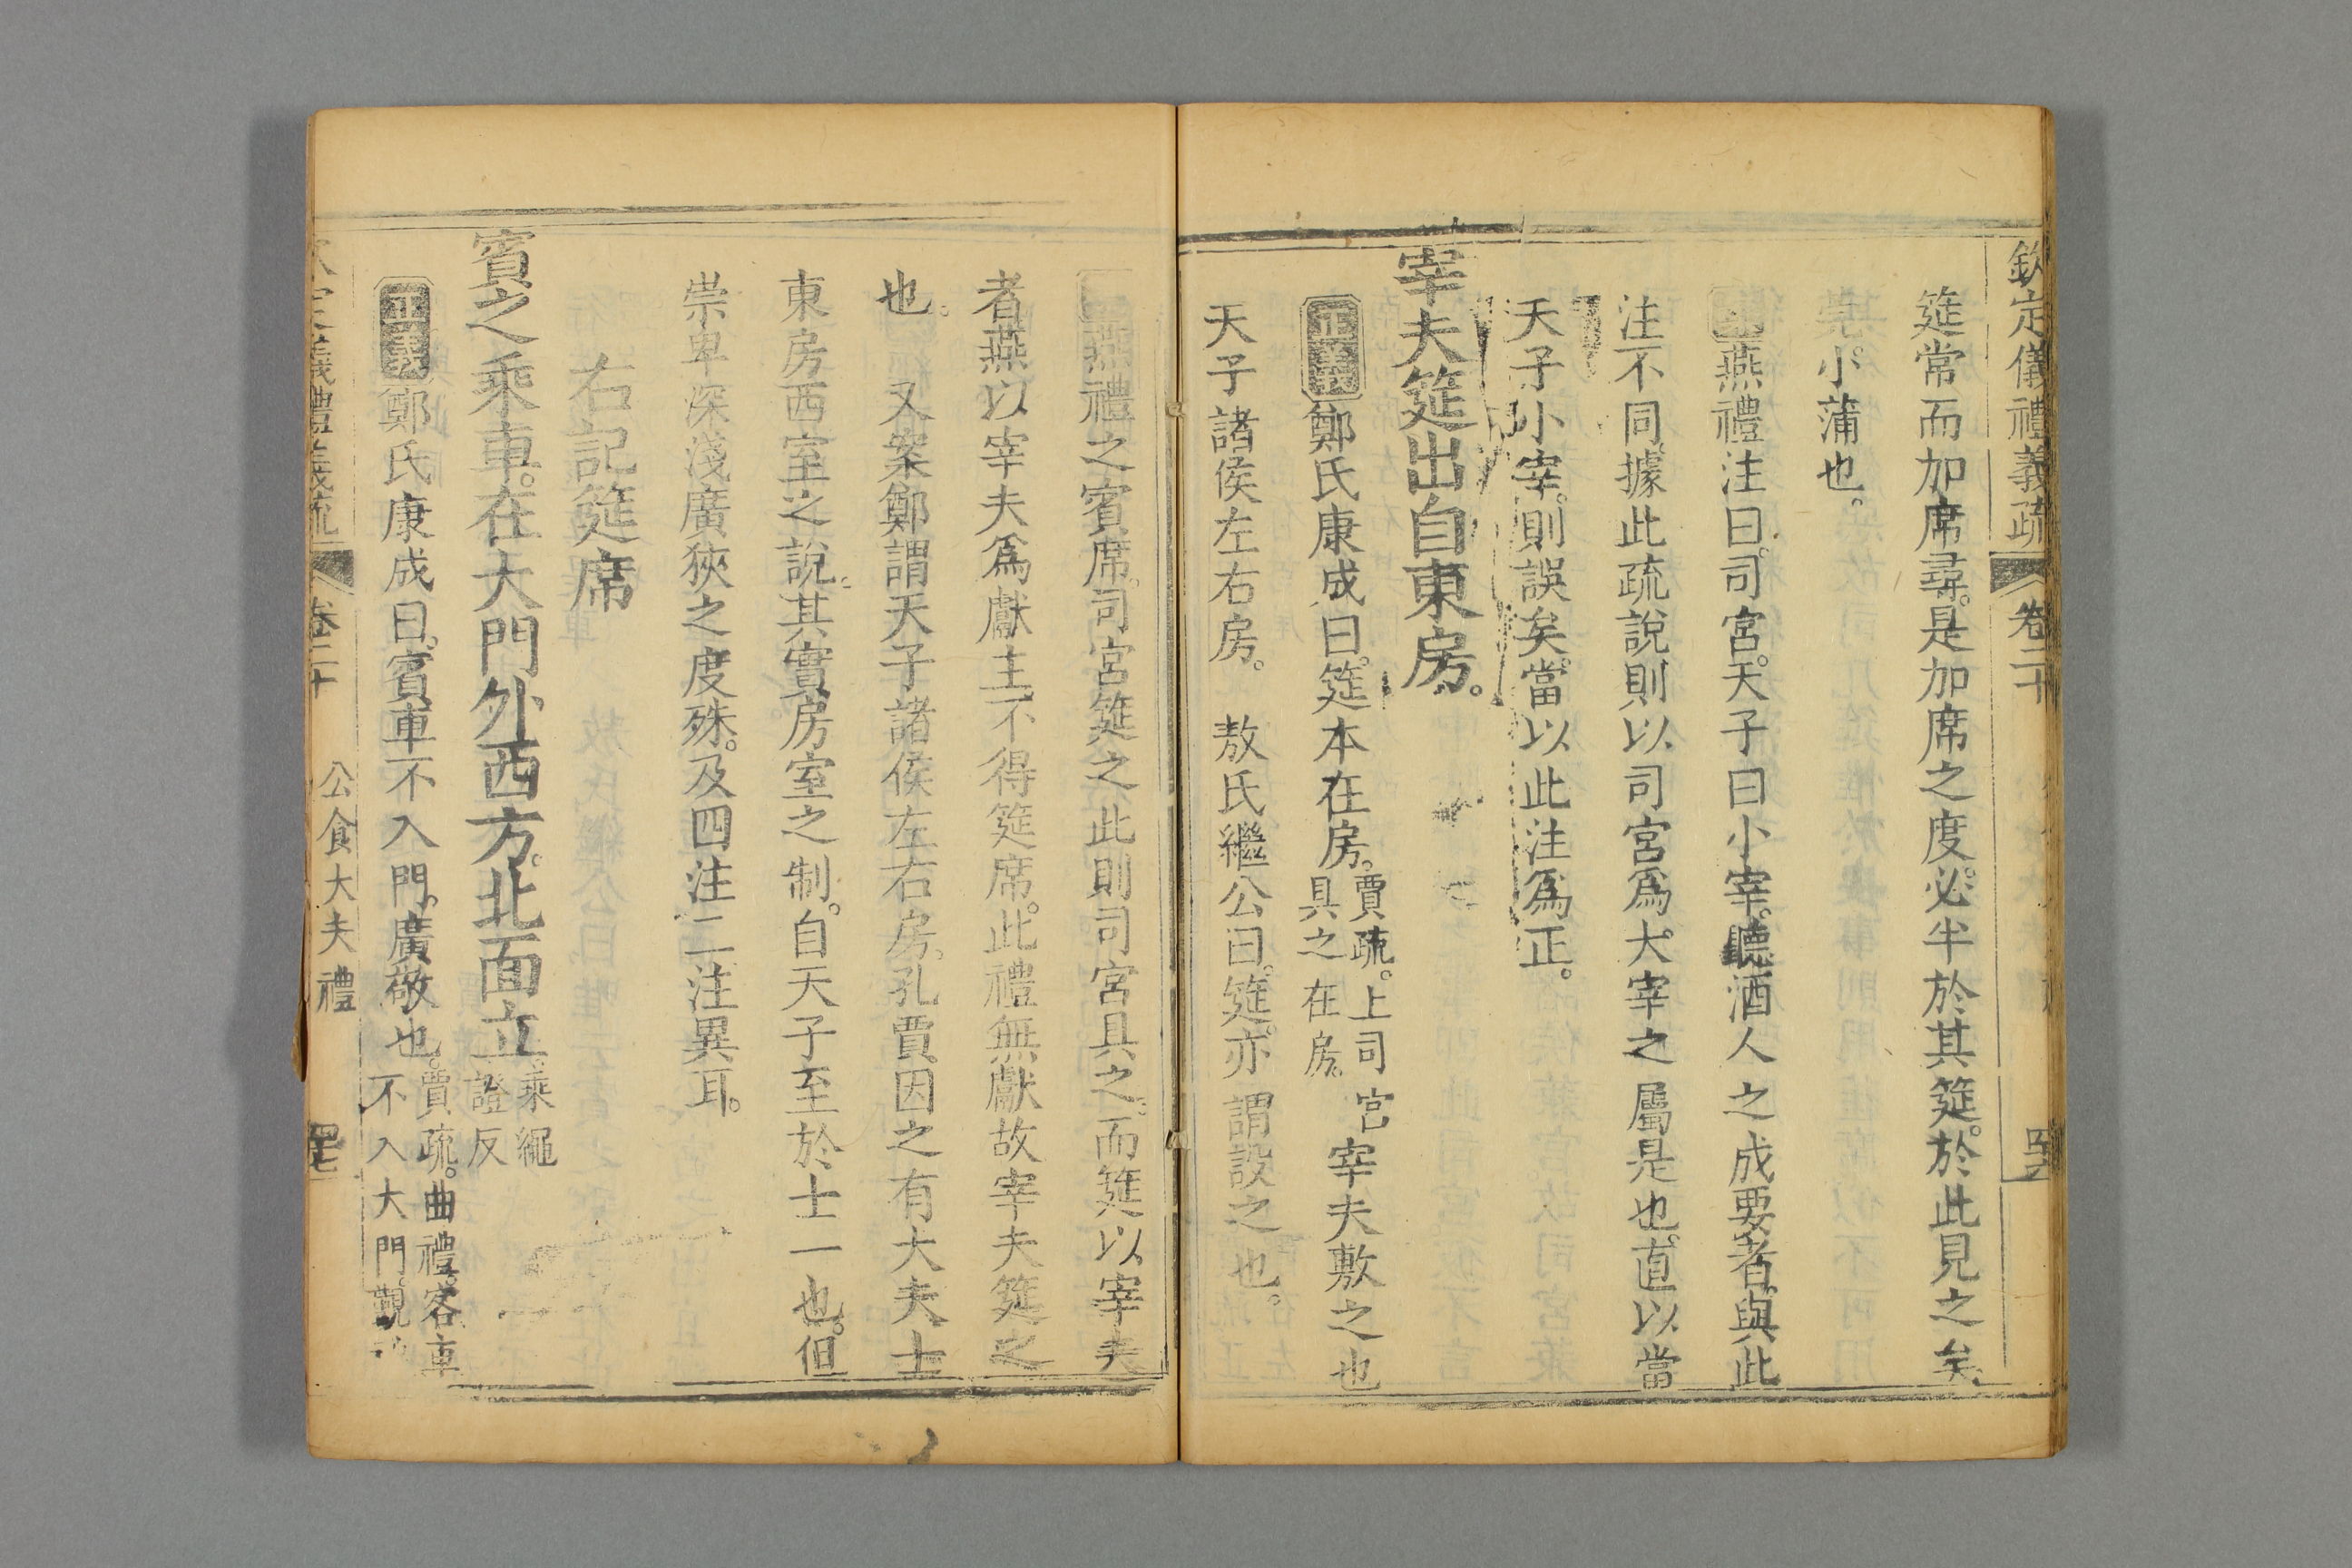 欽定儀禮義疏 卷二十
筵常而加席尋是加席之度必半於其筵於此見之矣
小蒲也
燕禮注曰司宮天子曰小宰聽酒人之成要者與此
注不同據此疏說則以司宮爲大宰之屬是也直以當
天子小宰則誤矣當以此注爲正
宰夫筵出自東房
正義鄭氏康成曰筵本在房賈疏上司宮具之在房宰夫敷之也
天子諸侯左右房 敖氏繼公曰筵亦謂設之也
燕禮之賓席司宮筵之此則司宮具之而筵以宰夫
者燕以宰夫爲獻主不得筵席此禮無獻故宰夫筵之
也 又案鄭謂天子諸侯左右房孔賈因之有大夫士
東房西室之說其實房室之制自天子至於士一也但
崇卑深淺廣狹之度殊及四注二注異耳
右記筵席
賓之乘車在大門外西方北面立乘繩證反
正義鄭氏康成曰賓車不入門廣敬也賈疏曲禮客車不入大門覲
定儀禮義疏 卷二十 公食大夫禮